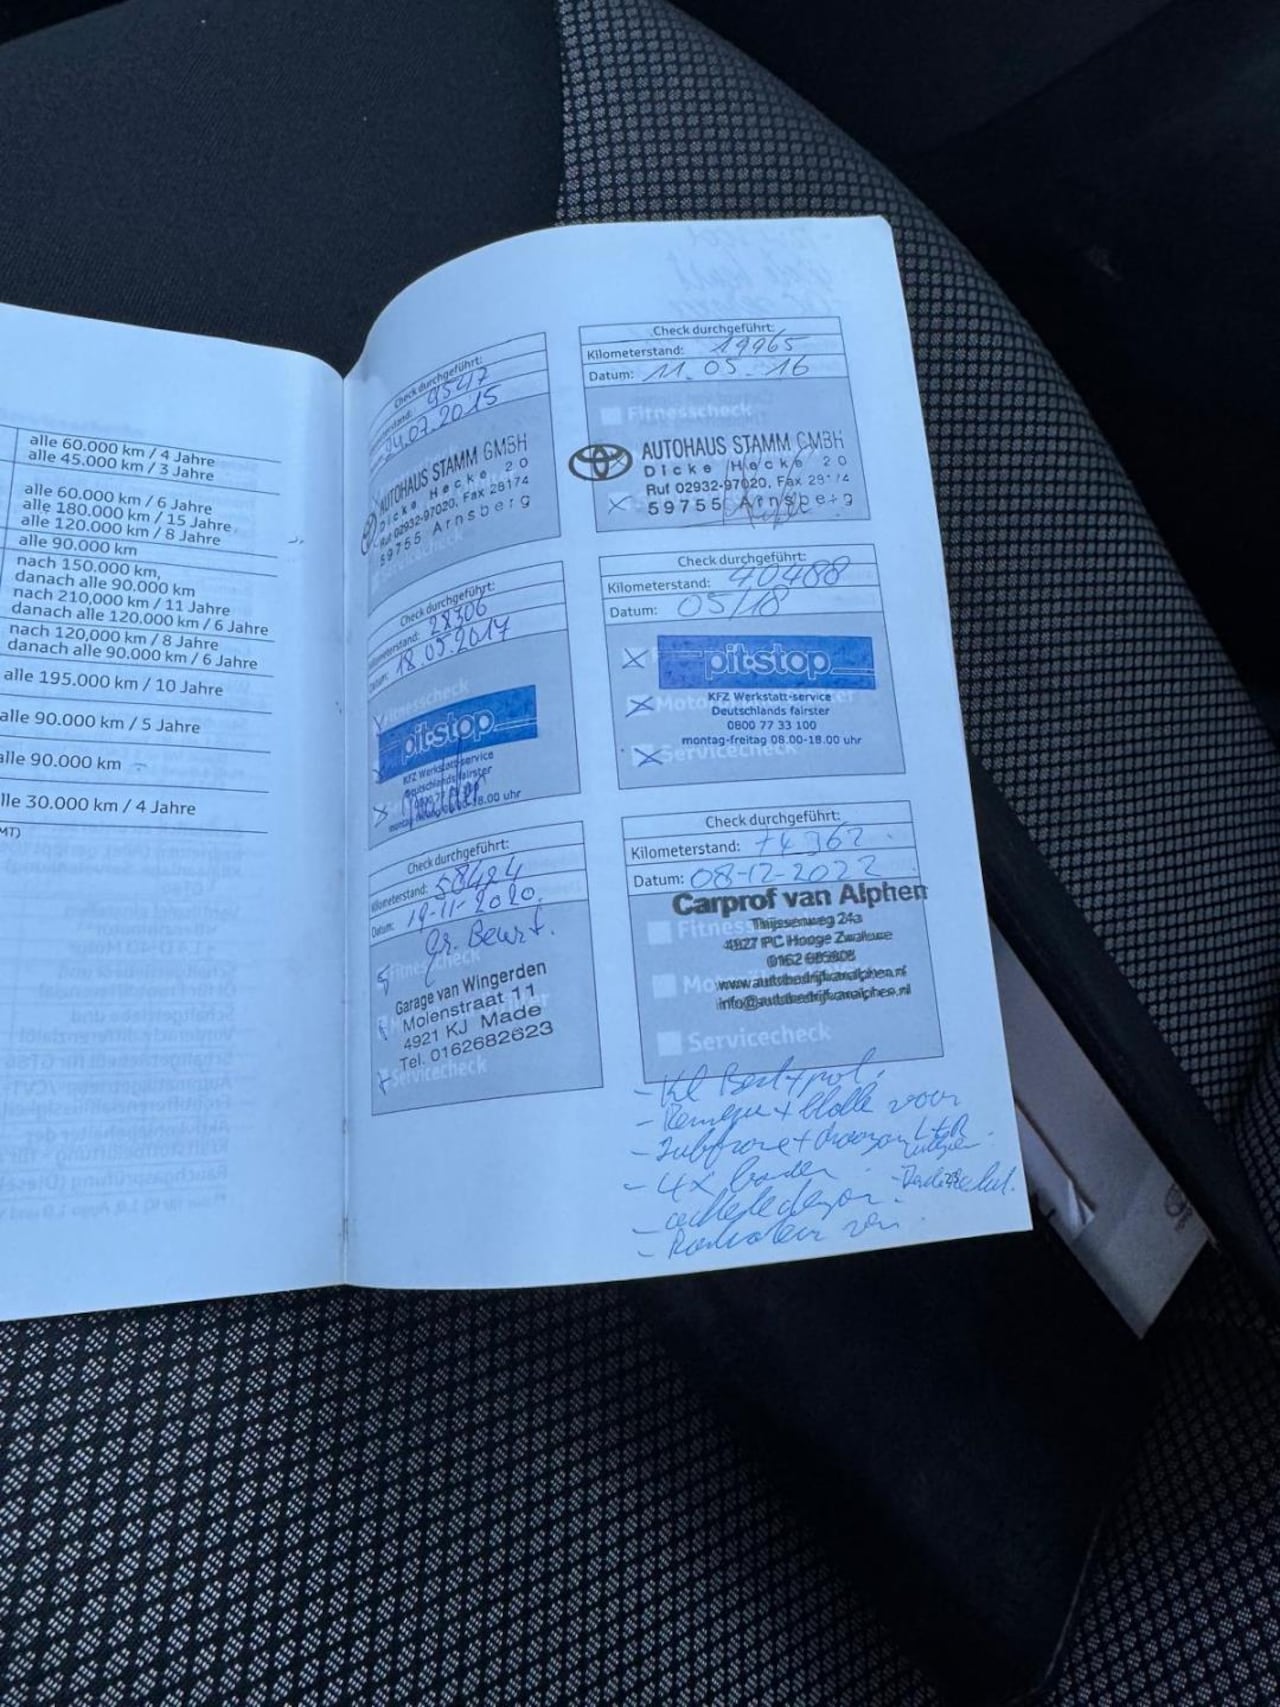 alle 60.000 km / 4 Jahre
alle 45.000 km / 3 Jahre
alle 60.000 km / 6 Jahre
alle 180.000 km / 15 Jahre,
alle 120.000 km / 8 Jahre
alle 90.000 km
nach 150.000 km,
danach alle 90.000 km
nach 210,000 km / 11 Jahre
danach alle 120.000 km / 6 Jahre
nach 120,000 km / 8 Jahre
danach alle 90.000 km / 6 Jahre
alle 195.000 km / 10 Jahre
alle 90.000 km / 5 Jahre
alle 90.000 km
lle 30.000 km / 4 Jahre
MT)
Check durchgeführt:
9547
04.07.2015
AUTOHAUS STAMM GMBH
Dicke Hecke 20
Ruf 02932-97020, Fax 28174
59755 Arnsberg
Servicecheck
Check durchgeführt:
Kilometerstand: 19965
Datum: 11.05.16
Fitnesscheck
AUTOHAUS STAMM GMBH
Dicke Hecke 20
Ruf 02932-97020, Fax 28174
59755 Arnsberg
Check durchgeführt:
Kilometerstand: 28306
Datum: 18.05.2017
Fitnesscheck
pit-stop
KFZ Werkstatt-service
Deutschlands fairster
montag-freitag 08.00-18.00 uhr
Check durchgeführt:
Kilometerstand: 40488
Datum: 05/18
pit-stop
KFZ Werkstatt-service
Deutschlands fairster
0800 77 33 100
montag-freitag 08.00-18.00 uhr
Servicecheck
Check durchgeführt:
Kilometerstand: 58424
Datum: 19-11-2020.
Gr. Beurt.
Fitnesscheck
Garage van Wingerden
Molenstraat 11
4921 KJ Made
Tel. 0162682623
Servicecheck
Check durchgeführt:
Kilometerstand: 74362
Datum: 08-12-2022
Carprof van Alphen
Thijssenweg 24a
4927 PC Hooge Zwaluwe
www.autobedrijfvanalphen.nl
info@autobedrijfvanalphen.nl
Servicecheck
- Kl Beurt
voor
- 4x banden